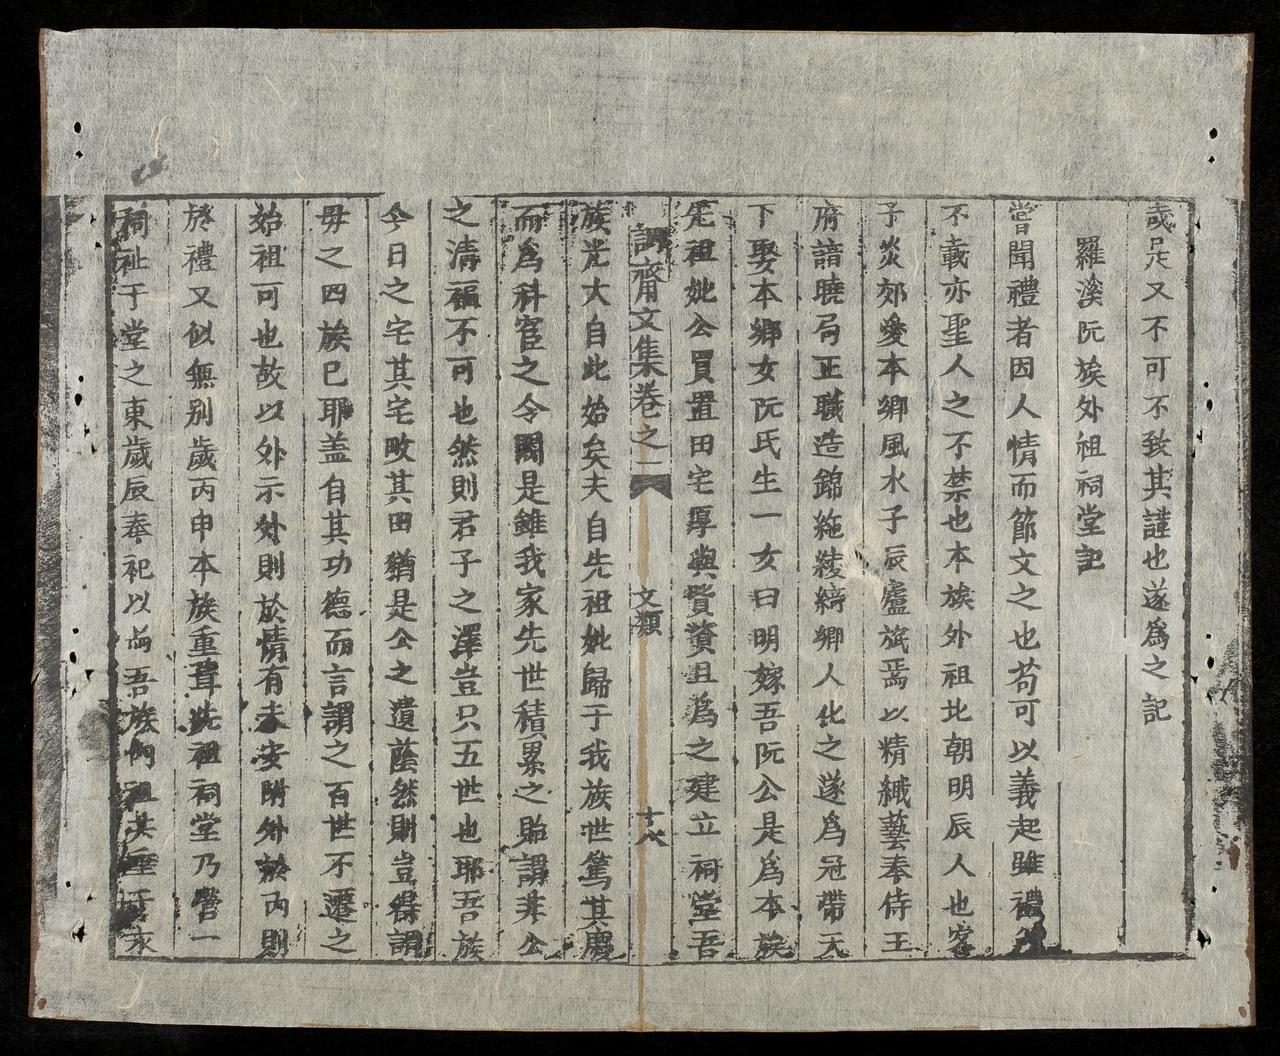 歲足又不可不致其謹也遂爲之記
羅溪阮族外祖祠堂記
嘗聞禮者因人情而節文之也苟可以義起雖禮
不載亦聖人之不禁也本族外祖北朝明辰人也客
于炎郊愛本鄉風水子辰廬旅焉以精織藝奉侍王
府諳曉局正職造錦絁綾綺鄉人化之遂爲冠帶天
下娶本鄉女阮氏生一女曰明嫁吾阮公是爲本族
先祖妣公買置田宅厚與貲資且爲之建立祠堂吾
訒齋文集卷之二
文類
十八
族光大自此始矣夫自先祖妣歸于我族世篤其慶
而爲科宦之令閥是雖我家先世積累之貽謂非公
之清福不可也然則君子之澤豈只五世也耶吾族
今日之宅其宅畋其田猶是公之遺蔭然則豈得謂
毋之四族已耶盖自其功德而言謂之百世不遷之
始祖可也故以外示外則於情有未安附外於內則
於禮又似無別歲丙申本族重葺先祖祠堂乃營一
祠址于堂之東歲辰奉祀以尚吾族外祖其垂于永